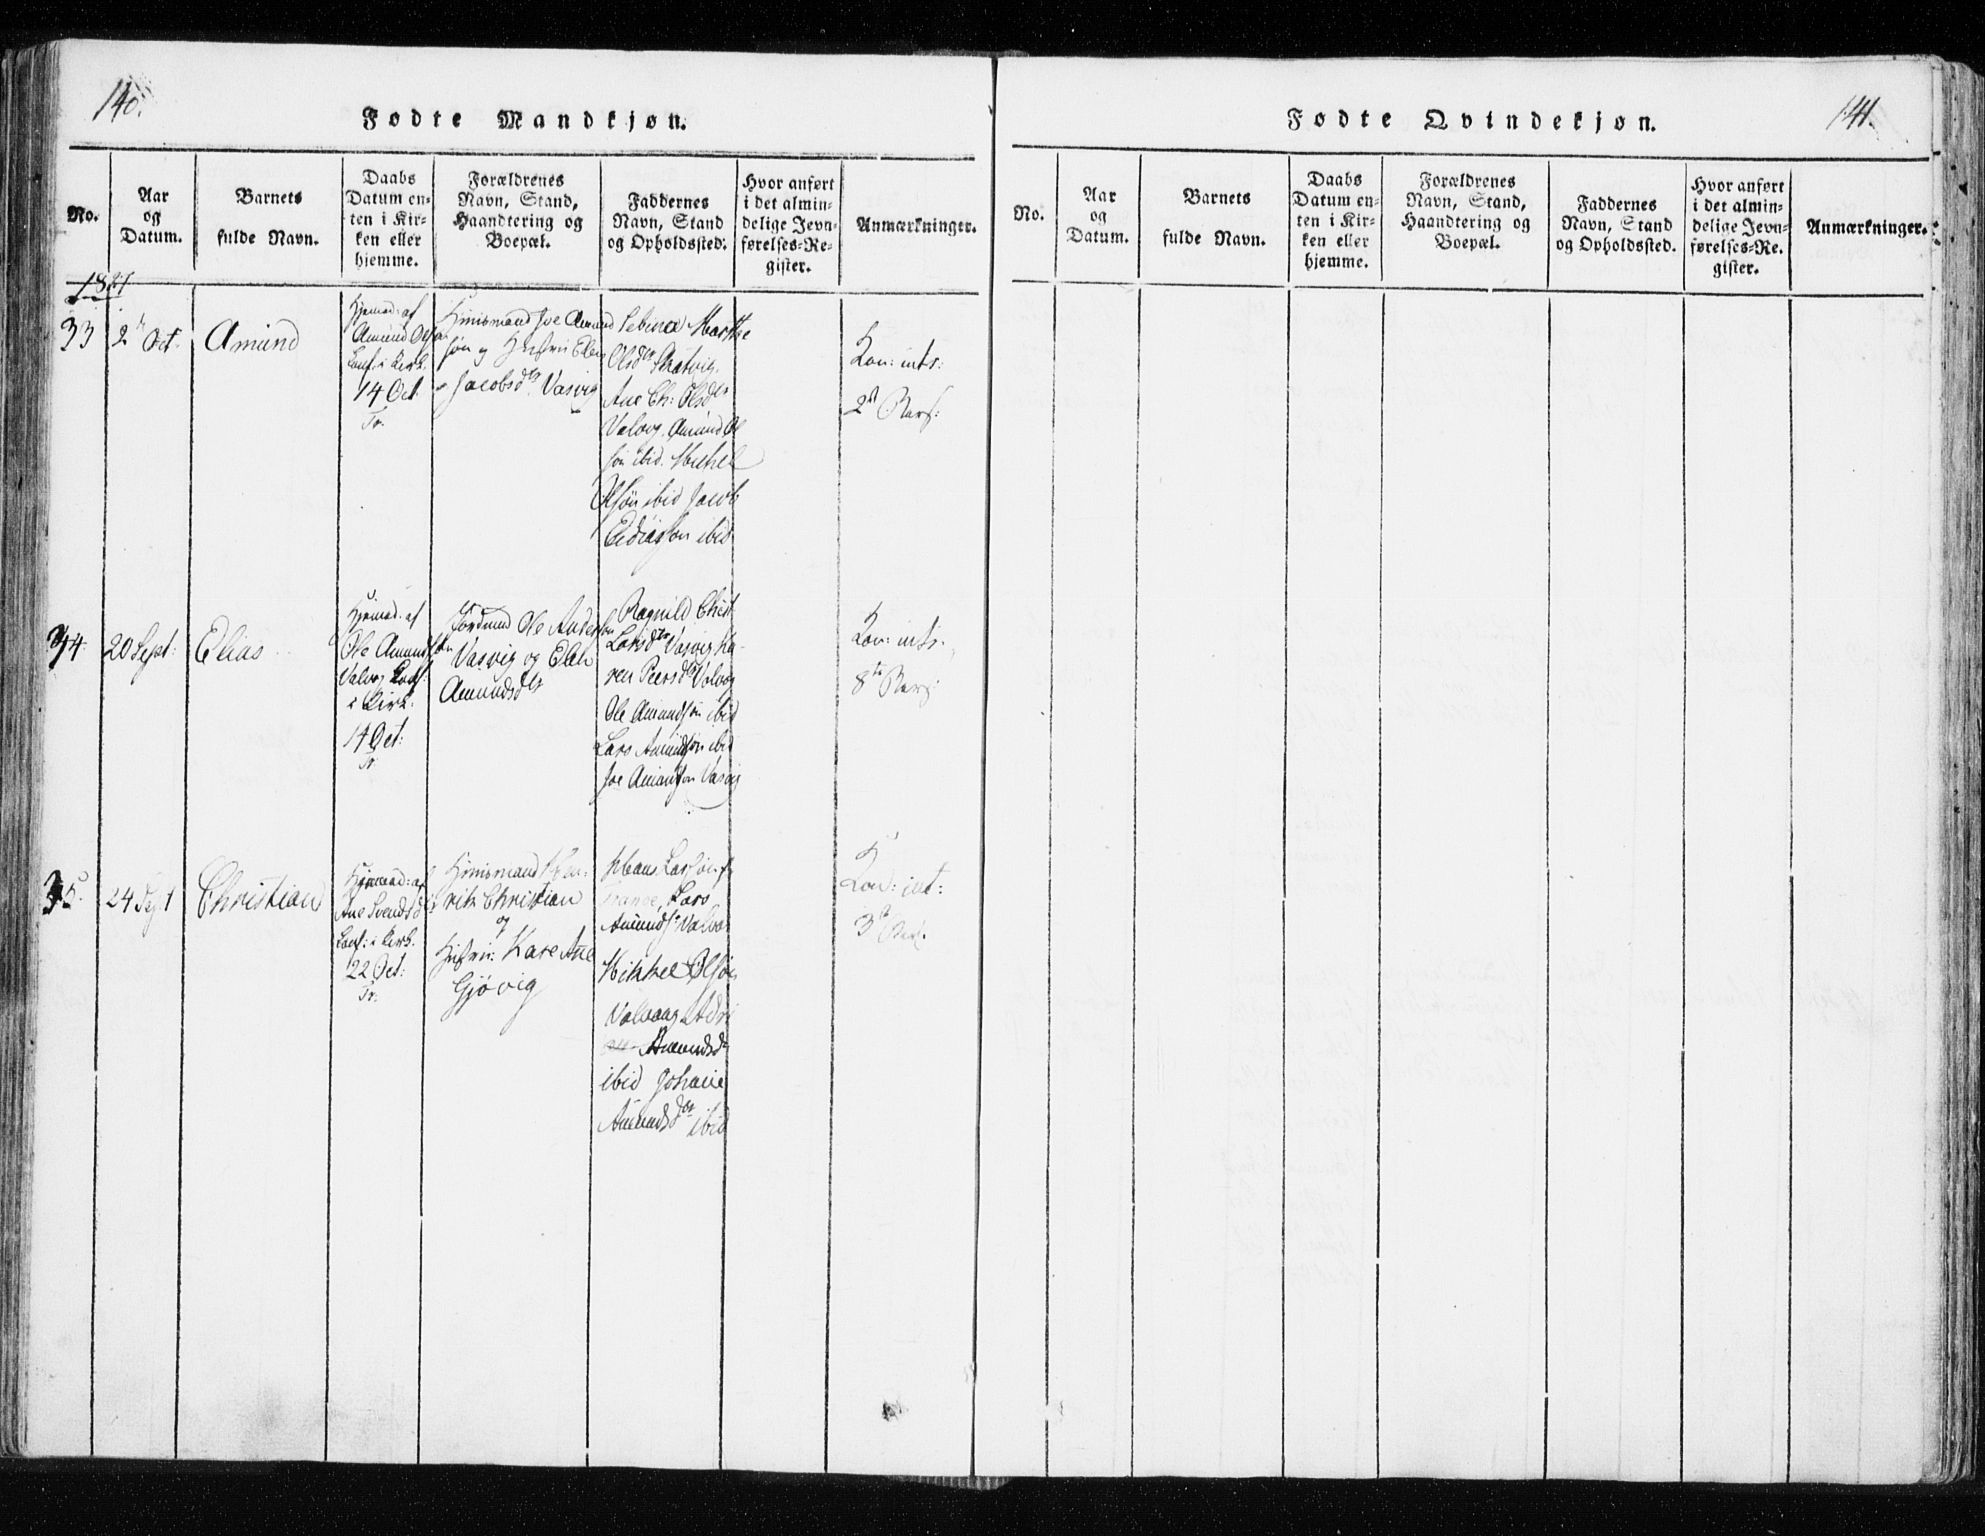 140.
Fødte Mandkjøn.
No.
Aar
og
Datum.
Barnets
fulde Navn.
Daabs
Datum en-
ten i Kir-
ken eller
hjemme.
Forældrenes
Navn, Stand,
Haandtering og
Boepæl.
Faddernes
Navn, Stand
og Opholdssted.
Hvor anført
i det almin-
delige Jevn-
førelses-Re-
gister.
Anmærkninger.
33
2 Oct.
Amund
Hjemed: af
Amund Ols
Conf: i Kirk.
14 Oct:
Tr.
Huusmand Joe Amund
søn og Hustru Elen
Jacobsdtr Vasvig
Marthe
Olsdtr Skatvig.
Ane Ch: Olsdtr
Valvog, Amund Ol
søn ibid. Michel
Olsøn ibid Jacob
ibid
Kon: ints:
2d Bars:
34
20 Sept:
Elias
Hjemed: af
Ole Amunds
Valvog Conf:
i Kirk.
14 Oct:
Tr.
Ole Anders
Vasvig og Elen
Amundsdtr
Ragnild Christ
Larsdtr Vasvig Ka-
ren Peersdtr Valvog
Ole Amundsøn ibid
Lars Amundsøn ibid
Joe Amundsøn Vasvig
Kon: ints.
8de Bars:
35
24 Sept
Christian
Hjemed: af
Ane Svendsd
Conf: i Kirk.
22 Oct:
Tr.
Huusmand Hen-
rik Christian
og
Hustru: Kare Ane
Gjøvig
Hans Larsøn
Lars
Amunds: Valvog
Mikkel Olsøn
Valvaag
Amundsdr
ibid Johane
Amundsdtr ibid
Kon: int:
3d Bars:
141.
Fødte Qvindekjøn.
No.
Aar
og
Datum.
Barnets
fulde Navn.
Daabs
Datum en-
ten i Kir-
ken eller
hjemme.
Forældrenes
Navn, Stand,
Haandtering og
Boepæl.
Faddernes
Navn, Stand
og Opholdssted.
Hvor anført
i det almin-
delige Jevn-
førelses-Re-
gister.
Anmærkninger.